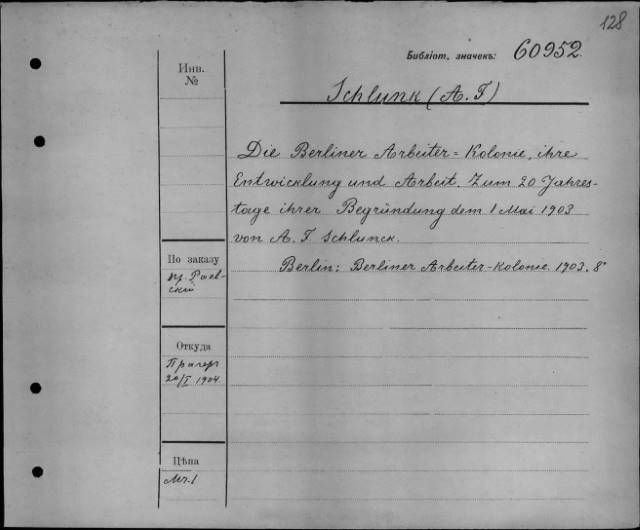 128
Библіот. значекъ: 60952
Инв.
№
Schlunk (A. F)
Die Berliner Arbeiter=Kolonie, ihre
Entwicklung und Arbeit. Zum 20 Jahres-
tage ihrer Begründung dem 1 Mai 1903
von A. F. Schlunck.
Berlin: Berliner Arbeiter-Kolonie. 1903. 8°
По заказу
пр. Раев-
скій
Откуда
Прагеръ
20/I 1904.
Цѣна
Mr. 1